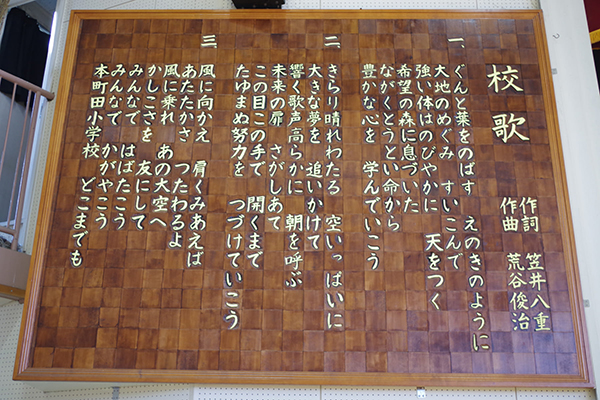 校歌
作詞 笠井八重
作曲 荒谷俊治
一、ぐんと葉をのばす えのきのように
大地のめぐみ すいこんで
強い体はのびやかに 天をつく
希望の森に息づいた
ながくとうとい命から
豊かな心を 学んでいこう
二 きらり晴れわたる 空いっぱいに
大きな夢を 追いかけて
響く歌声高らかに 朝を呼ぶ
未来の扉 さがしあて
この目この手で 開くまで
たゆまぬ努力を つづけていこう
三 風に向かえ 肩くみあえば
あたたかさ つたわるよ
風に乗れ あの大空へ
かしこさを 友にして
みんなで はばたこう
みんなで かがやこう
本町田小学校 どこまでも